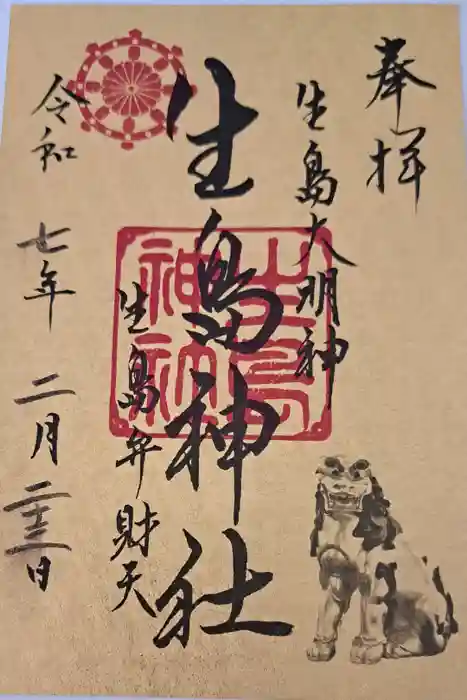 奉拝
生島大明神
生島神社
生島神社
生島弁財天
令和 七年 二月 二十三日